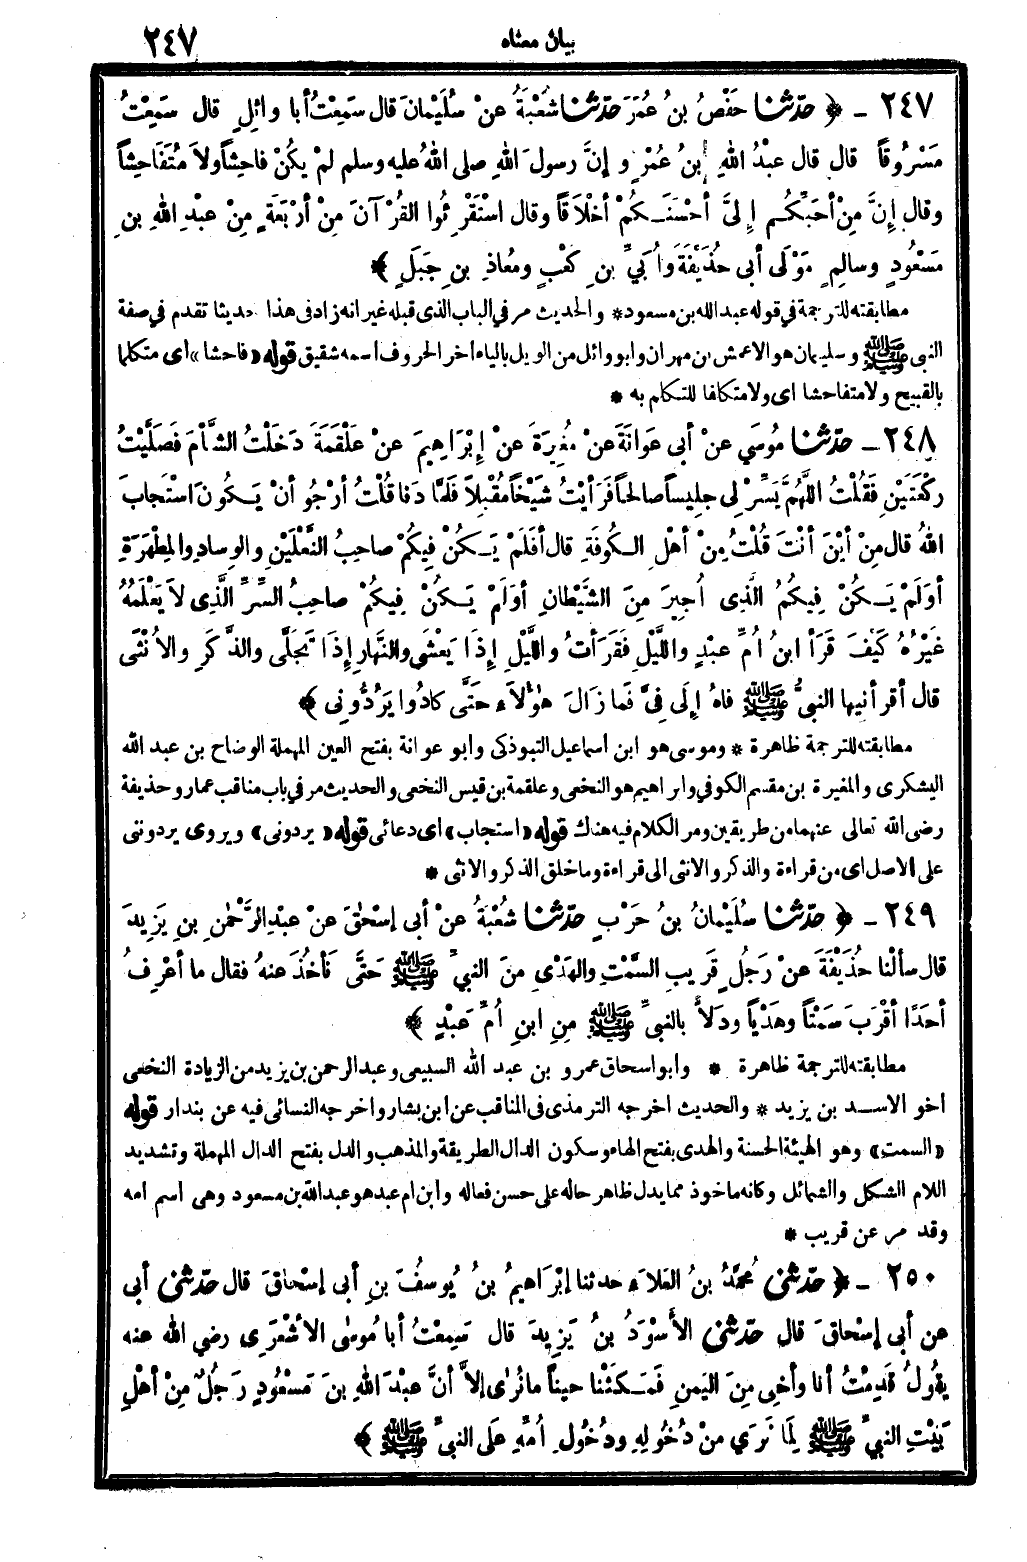 بيان معناه ٢٤٧
٢٤٧ - ﴿ حدّثنا حَفْصُ بنُ عُمَرَ حدّثنا شُعْبَةُ عنْ سُلَيْمانَ قال سَمِعْتُ أبا وائِلٍ قال سَمِعْتُ
مَسْرُوقاً قال قال عبْدُ اللهِ بنُ عُمْرٍ و إنَّ رسولَ اللهِ صلى اللهُ عليه وسلم لمْ يكُنْ فاحِشاً ولاَ مُتَفَاحِشاً
وقال إنَّ مِنْ أحَبِّكُم إلىَّ أحْسَنَكُمْ أخْلاَقاً وقال اسْتَقْرِئُوا القُرْآنَ مِنْ أرْبَعَةٍ مِنْ عبْدِ اللهِ بنِ
مَسْعُودٍ وسالِمٍ مَوْلَى أبى حُذَيْفَةَ وأُبَيِّ بنِ كَعْبٍ ومُعاذِ بنِ جَبَلٍ ﴾
مطابقته للترجمة في قوله عبد الله بن مسعود * والحديث مر في الباب الذى قبله غير انه زاد فى هذا حديثا تقدم في صفة
النبى ﷺ وسليمان هو الاعمش بن مهران وابو وائل من الويل بالياء اخر الحروف اسمه شقيق قوله «فاحشا» اى متكلما
بالقبيح ولا متفاحشا اى ولا متكلفا للتكلم به *
٢٤٨ - حدّثنا مُوسَي عنْ أبى عَوَانَةَ عنْ مُغِيرَةَ عنْ إبْرَاهِيمَ عنْ عَلْقَمَةَ دَخَلْتُ الشَّأمَ فَصَلَّيْتُ
ركْعَتَيْنِ فَقُلْتُ اللَّهُمَّ يَسِّرْ لِى جلِيساً صالحاً فَرَأيْتُ شَيْخاً مُقْبِلاً فَلَمَّا دَنا قُلْتُ أرْجُو أنْ يَكُونَ اسْتَجابَ
اللهُ قال مِنْ أيْنَ أنْتَ قُلْتُ مِنْ أهْلِ الكُوفَةِ قال أفَلَمْ يَكُنْ فِيكُمْ صاحِبُ النَّعْلَيْنِ والوِسادِ والمِطْهَرَةِ
أوَلَمْ يَكُنْ فِيكُمُ الَّذِى أُجِيرَ مِنَ الشَّيْطانِ أوَلَمْ يَكُنْ فِيكُمْ صاحِبُ السِّرِّ الَّذِى لاَ يَعْلَمُهُ
غَيْرُهُ كَيْفَ قَرَأ ابنُ أُمِّ عبْدٍ واللَّيْلِ فَقَرَأْتُ واللَّيْلِ إذَا يَغْشَي والنَّهارِ إذَا تَجَلَّى والذَّكَرِ والأُنْثَى
قال أقْرَأنِيها النبىُّ ﷺ فاهُ إلَى فِيَّ فَما زَالَ هؤُلاَءِ حَتَّى كادُوا يَرُدُّونِى ﴾
مطابقته للترجمة ظاهرة * وموسى هو ابن اسماعيل التبوذكى وأبو عوانة بفتح العين المهملة الوضاح بن عبد الله
اليشكرى والمغيرة بن مقسم الكوفي وابراهيم هو النخعى وعلقمة بن قيس النخعى والحديث مر في باب مناقب عمار وحذيفة
رضى الله تعالى عنهما من طريقين ومر الكلام فيه هناك قوله «استجاب» اى دعائى قوله «يردونى» ويروى يردوننى
على الاصل اى من قراءة والذكر والانثى الى قراءة وما خلق الذكر والانثى *
٢٤٩ - ﴿ حدّثنا سُلَيْمانُ بنُ حَرْبٍ حدّثنا شُعْبَةُ عنْ أبى إسْحٰقَ عنْ عبْدِ الرَّحْمٰنِ بنِ يَزِيدَ
قال سألْنا حُذَيْفَةَ عنْ رَجُلٍ قَرِيبِ السَّمْتِ والهَدْىِ مِنَ النبىِّ ﷺ حَتَّى نَأخُذَ عنهُ فقال ما أعْرِفُ
أحَدًا أقْرَبَ سَمْتاً وهَدْياً ودَلاًّ بالنبىِّ ﷺ مِنِ ابنِ أُمِّ عَبْدٍ ﴾
مطابقته للترجمة ظاهرة * وأبو اسحاق عمرو بن عبد الله السبيعى وعبد الرحمن بن يزيد من الزيادة النخعى
اخو الاسد بن يزيد * والحديث اخرجه الترمذى فى المناقب عن ابن بشار واخرجه النسائى فيه عن بندار قوله
«السمت» وهو الهيئة الحسنة والهدى بفتح الهاء وسكون الدال الطريقة والمذهب والدل بفتح الدال المهملة وتشديد
اللام الشكل والشمائل وكانه ماخوذ مما يدل ظاهر حاله على حسن فعاله وابن ام عبد هو عبد الله بن مسعود وهى اسم امه
وقد مر عن قريب *
٢٥٠ - ﴿ حدّثنى مُحَمَّدُ بنُ العَلاَءِ حدثنا إبْرَاهِيمُ بنُ يُوسُفَ بنِ أبى إسْحَاقَ قال حدّثنى أبى
عن أبى إسْحاقَ قال حدّثنى الأسْوَدُ بنُ يَزِيدَ قال سَمِعْتُ أبا مُوسٰى الأشْعَرِى رضي الله عنه
يقُولُ قَدِمْتُ أنا وأخِى مِنَ اليَمنِ فَمَكَثْنا حيناً مانُرٰى إلاَّ أنَّ عبْدَ اللهِ بنَ مَسْعُودٍ رَجُلٌ مِنْ أهْلِ
بَيْتِ النبىِّ ﷺ لِمَا نَرَي منْ دُخُولِهِ ودُخُولِ أُمِّهِ عَلَى النبىِّ ﷺ ﴾